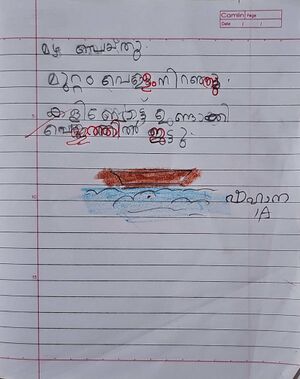 Camlin Page
Date / /
മഴ പെയ്തു.
മുറ്റം വെള്ളംനിറഞ്ഞു.
കളിബോട്ട് ഉണ്ടാക്കി
വെള്ളത്തിൽ ഇട്ടു.
ഫഹാന
1A